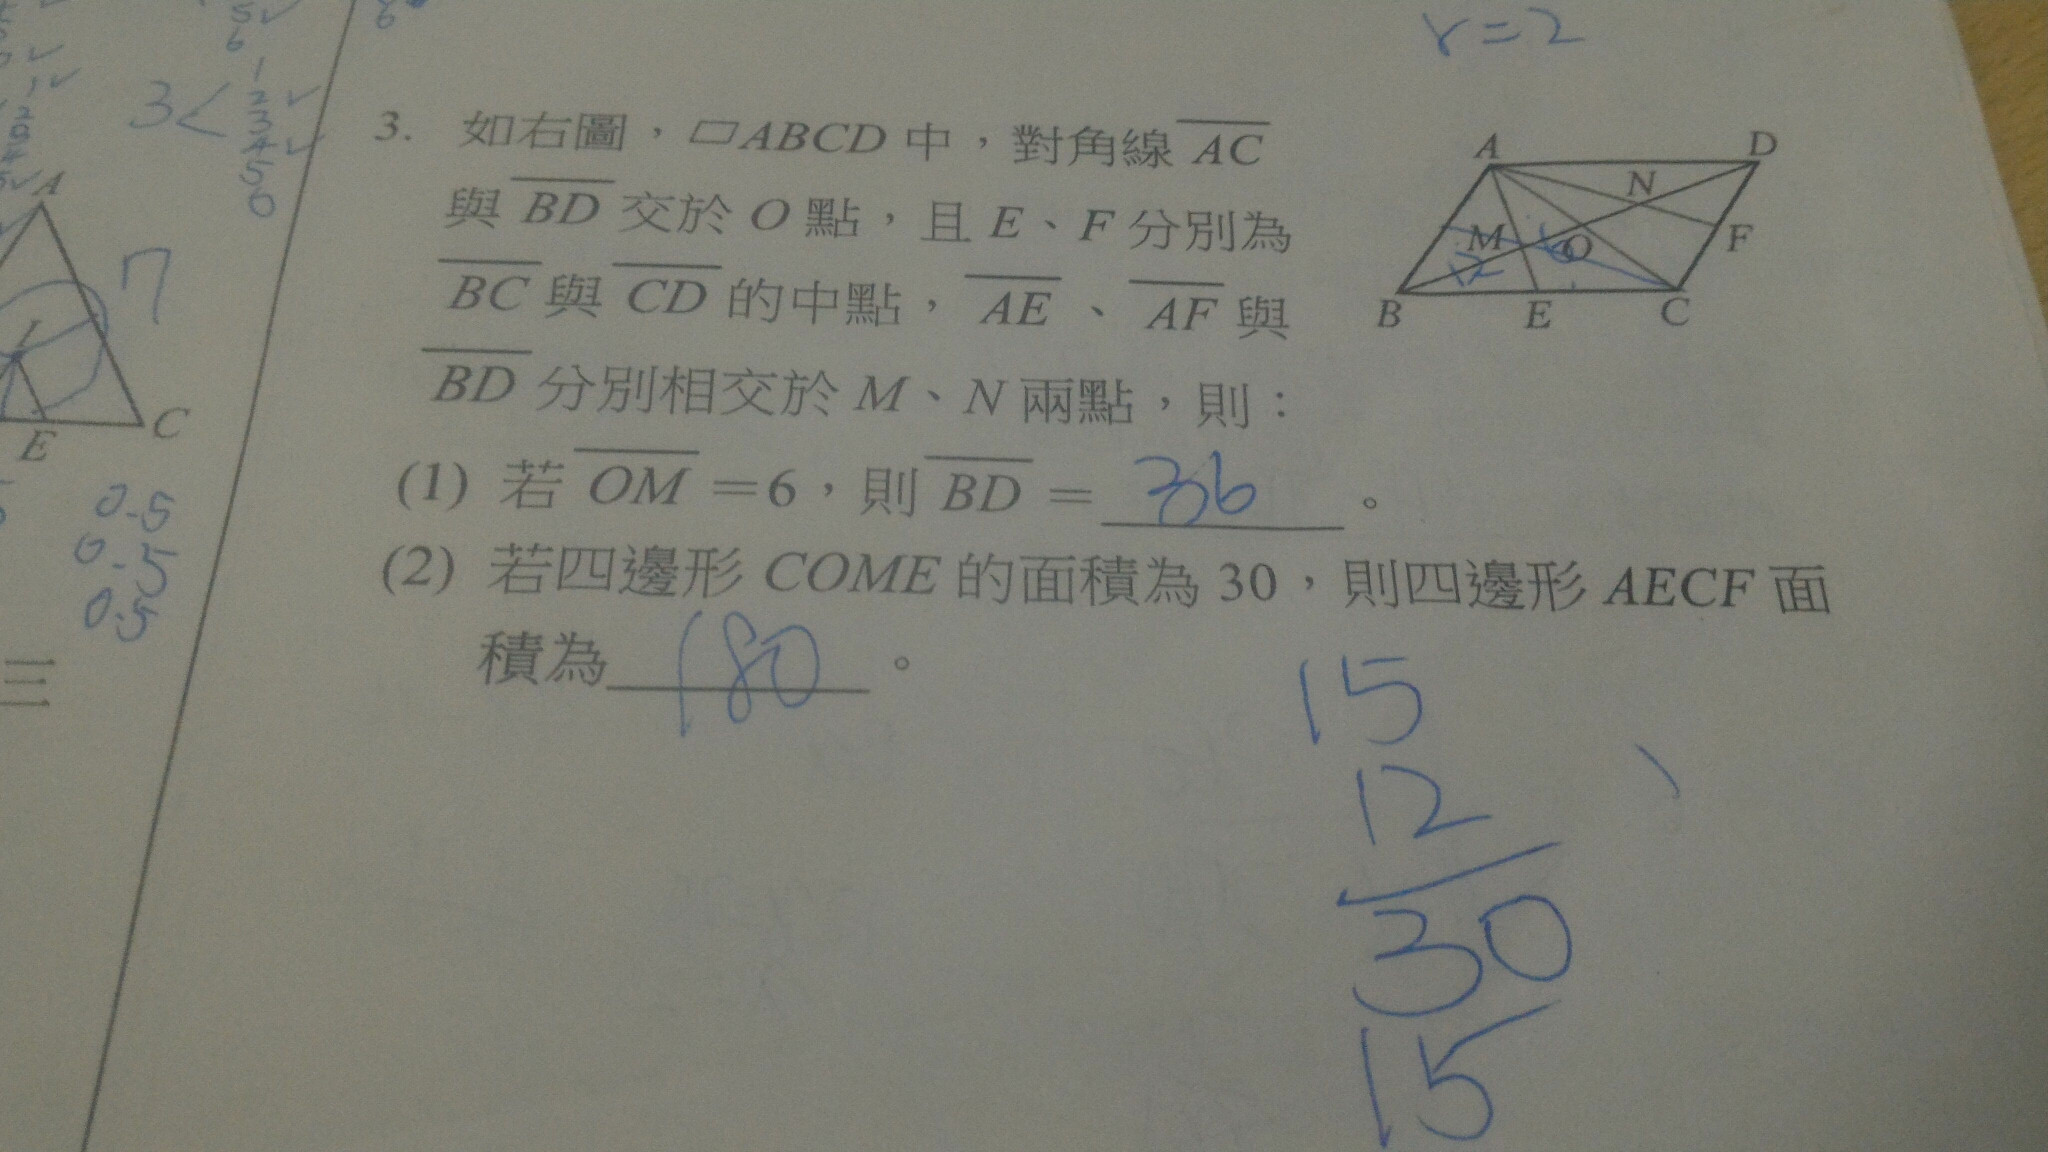 r=2
5✓
6
6
1✓
3<
1
2✓
3
4✓
5
6
A
I
7
E
C
0.5
0.5
0.5
三
3. 如右圖，▱ABCD 中，對角線 AC
與 BD 交於 O 點，且 E、F 分別為
BC 與 CD 的中點，AE、AF 與
BD 分別相交於 M、N 兩點，則：
(1) 若 OM =6，則 BD = 36 。
(2) 若四邊形 COME 的面積為 30，則四邊形 AECF 面
積為 180 。
A
D
N
M
O
F
12
6
B
E
C
15
12
30
15